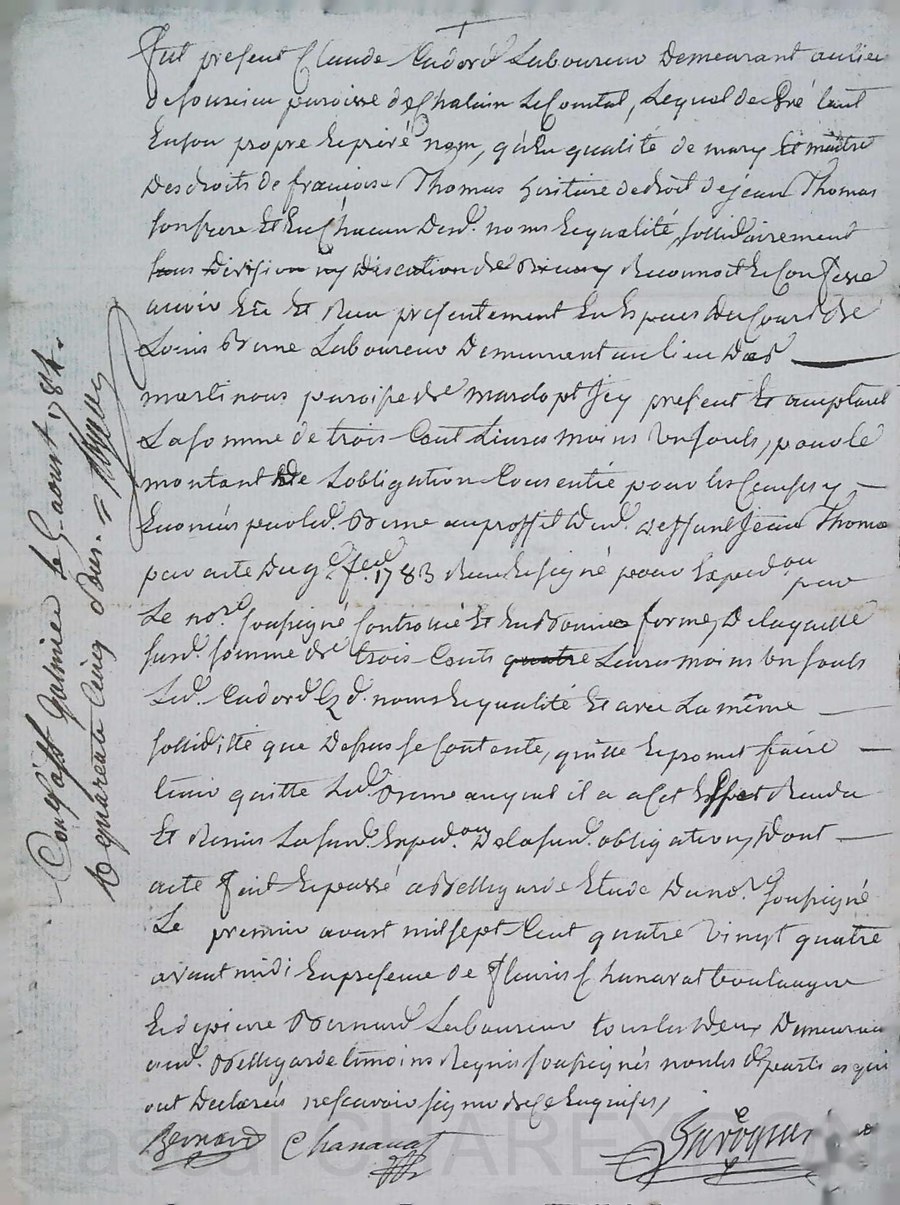 Fut present Claude Cadord Laboureur Demeurant au lieu
de paroisse de Chalain Le Comtal, Lequel de gré tant
En son propre Et privé nom, qu'En qualité de mary Et maître
Des droits de francoise Thomas heritiere de droit de jean Thomas
son frere Et En Chacun Desd. noms Et qualité, sollidairement
sans Division ny Discution de reconnoit Et Confesse
avoir Eu Et Receu presentement En Especes Du Cours de
Louis Brune Laboureur Demeurant au lieu Des
martinous paroisse de mardopt Icy present Et acceptant
La somme de trois Cent Livres moins Un souls, pour le
montant de Lobligation Consentie pour les Causes y
Enoncés par led. Brune au proffit dud. deffunt Jean Thomas
par acte Du 9e. 1783 Receu Et signé pour Expedon par
Le nore. soussigné Controlé Et En Bonne forme, De laquelle
susd. somme de trois Cents quatre Livres moins Un souls
Led. Cadord Esd. noms Et qualité Et avec La même
sollidité que Dessus se Contente, quitte Et promet faire
tenir quitte Led. Brune auquel il a a Cet Effet Rendu
Et Remis La susd. Expedon De la susd. obligation, Dont
acte fait Et passé a Bellegarde Etude Du nore. soussigné
Le premier aoust mil sept Cent quatre vingt quatre
avant midi En presence de fleuris Chanavat boulanger
Et de pierre Bernard Laboureur tous les deux Demeurant
aud. Bellegarde temoins Requis soussignés non les parties qui
ont Declarés ne scavoir signer de Ce Enquises,
Bernard Chanavat
Conlé a St Galmier le 5. aoust 1784.
quarente Cinq sous.
Pascal CHAREYRON